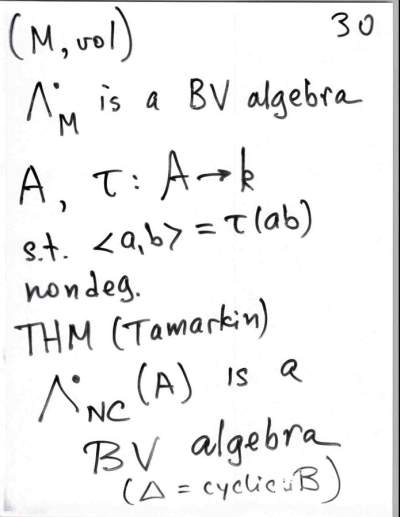 (M, vol) 30
Λ^•_M is a BV algebra
A, τ: A→k
s.t. <a,b> = τ(ab)
nondeg.
THM (Tamarkin)
Λ^•_NC (A) is a
BV algebra
(Δ = cyclic B)